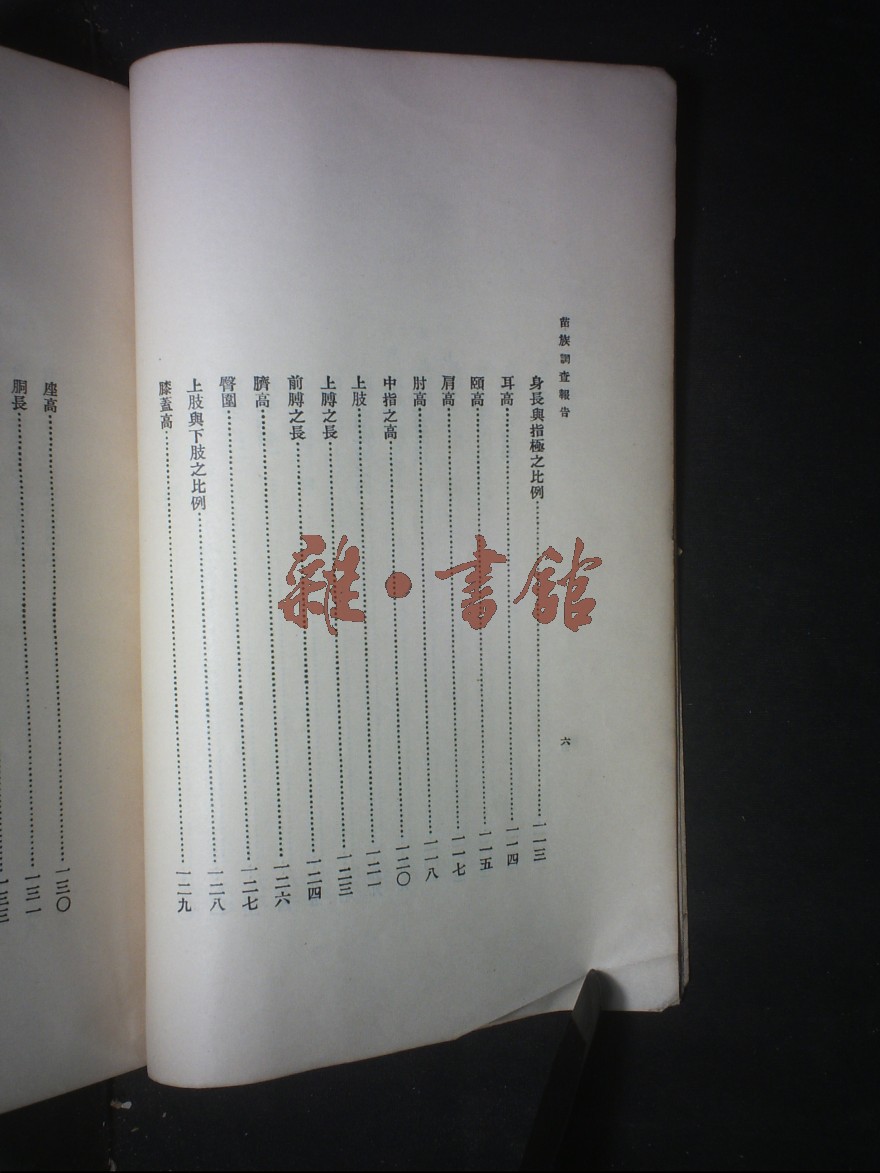 苗族調查報告
六
身長與指極之比例 一一三
耳高 一一四
頤高 一一五
肩高 一一七
肘高 一一八
中指之高 一二〇
上肢 一二一
上膊之長 一二三
前膊之長 一二四
臍高 一二六
臀圍 一二七
上肢與下肢之比例 一二八
膝蓋高 一二九
座高 一三〇
胴長 一三一
一三三
雜·書館